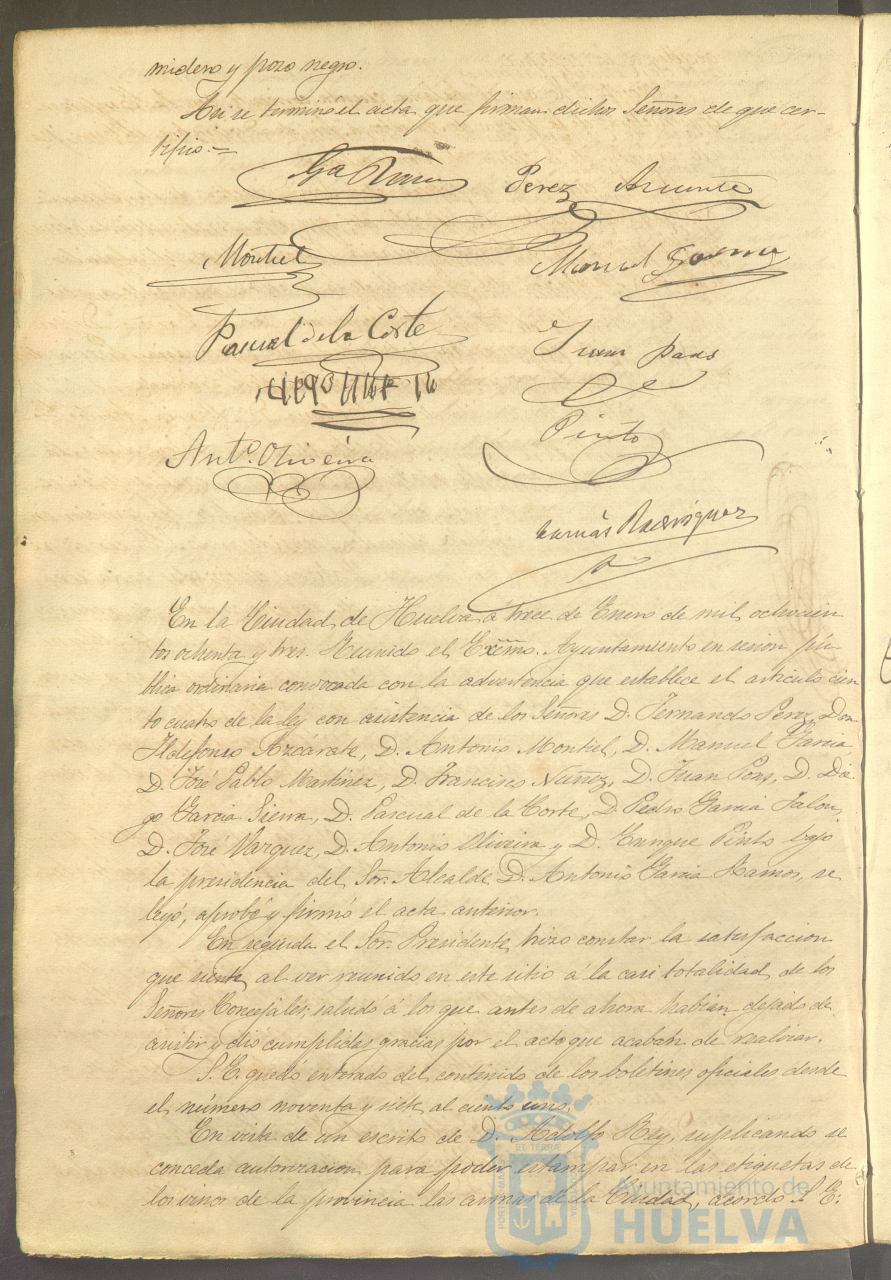 midero y pozo negro.
Así se terminó el acta que firman dichos Señores de que cer-
tifico.=
Ga Ramos
Perez Azcarate
Montiel
Manuel Garcia
Pascual de la Corte
Juan Pons
Pinto
Antº. Oliveira
Rodriguez
En la Ciudad de Huelva á trece de Enero de mil ochocien
tos ochenta y tres. Reunido el Excmo. Ayuntamiento en sesion pú-
blica ordinaria convocada con la advertencia que establece el articulo cien
to cuatro de la ley con asistencia de los Señores D. Fernando Perez, Don
Ildefonso Azcárate, D. Antonio Montiel, D. Manuel Garcia,
D. José Pablo Martinez, D. Francisco Nuñez, D. Juan Pons, D. Die
go Garcia Sierra, D. Pascual de la Corte, D. Pedro Garcia Jalon,
D. José Vazquez, D. Antonio Oliveira y D. Enrique Pinto bajo
la presidencia del Sor. Alcalde D. Antonio Garcia Ramos, se
leyó, aprobó y firmó el acta anterior.
En seguida el Sor. Presidente hizo constar la satisfaccion
que siente al ver reunido en este sitio á la casi totalidad de los
Señores Concejales, saludó á los que antes de ahora habian dejado de
asistir y dió cumplidas gracias por el acto que acaban de realizar.
S. E. quedó enterado del contenido de los boletines oficiales desde
el número noventa y siete al ciento uno.
En vista de un escrito de D. Adolfo Rey, suplicando se
conceda autorizacion para poder estampar en las etiquetas de
los vinos de la provincia las armas de la Ciudad, acordó S. E.
Ayuntamiento de
HUELVA